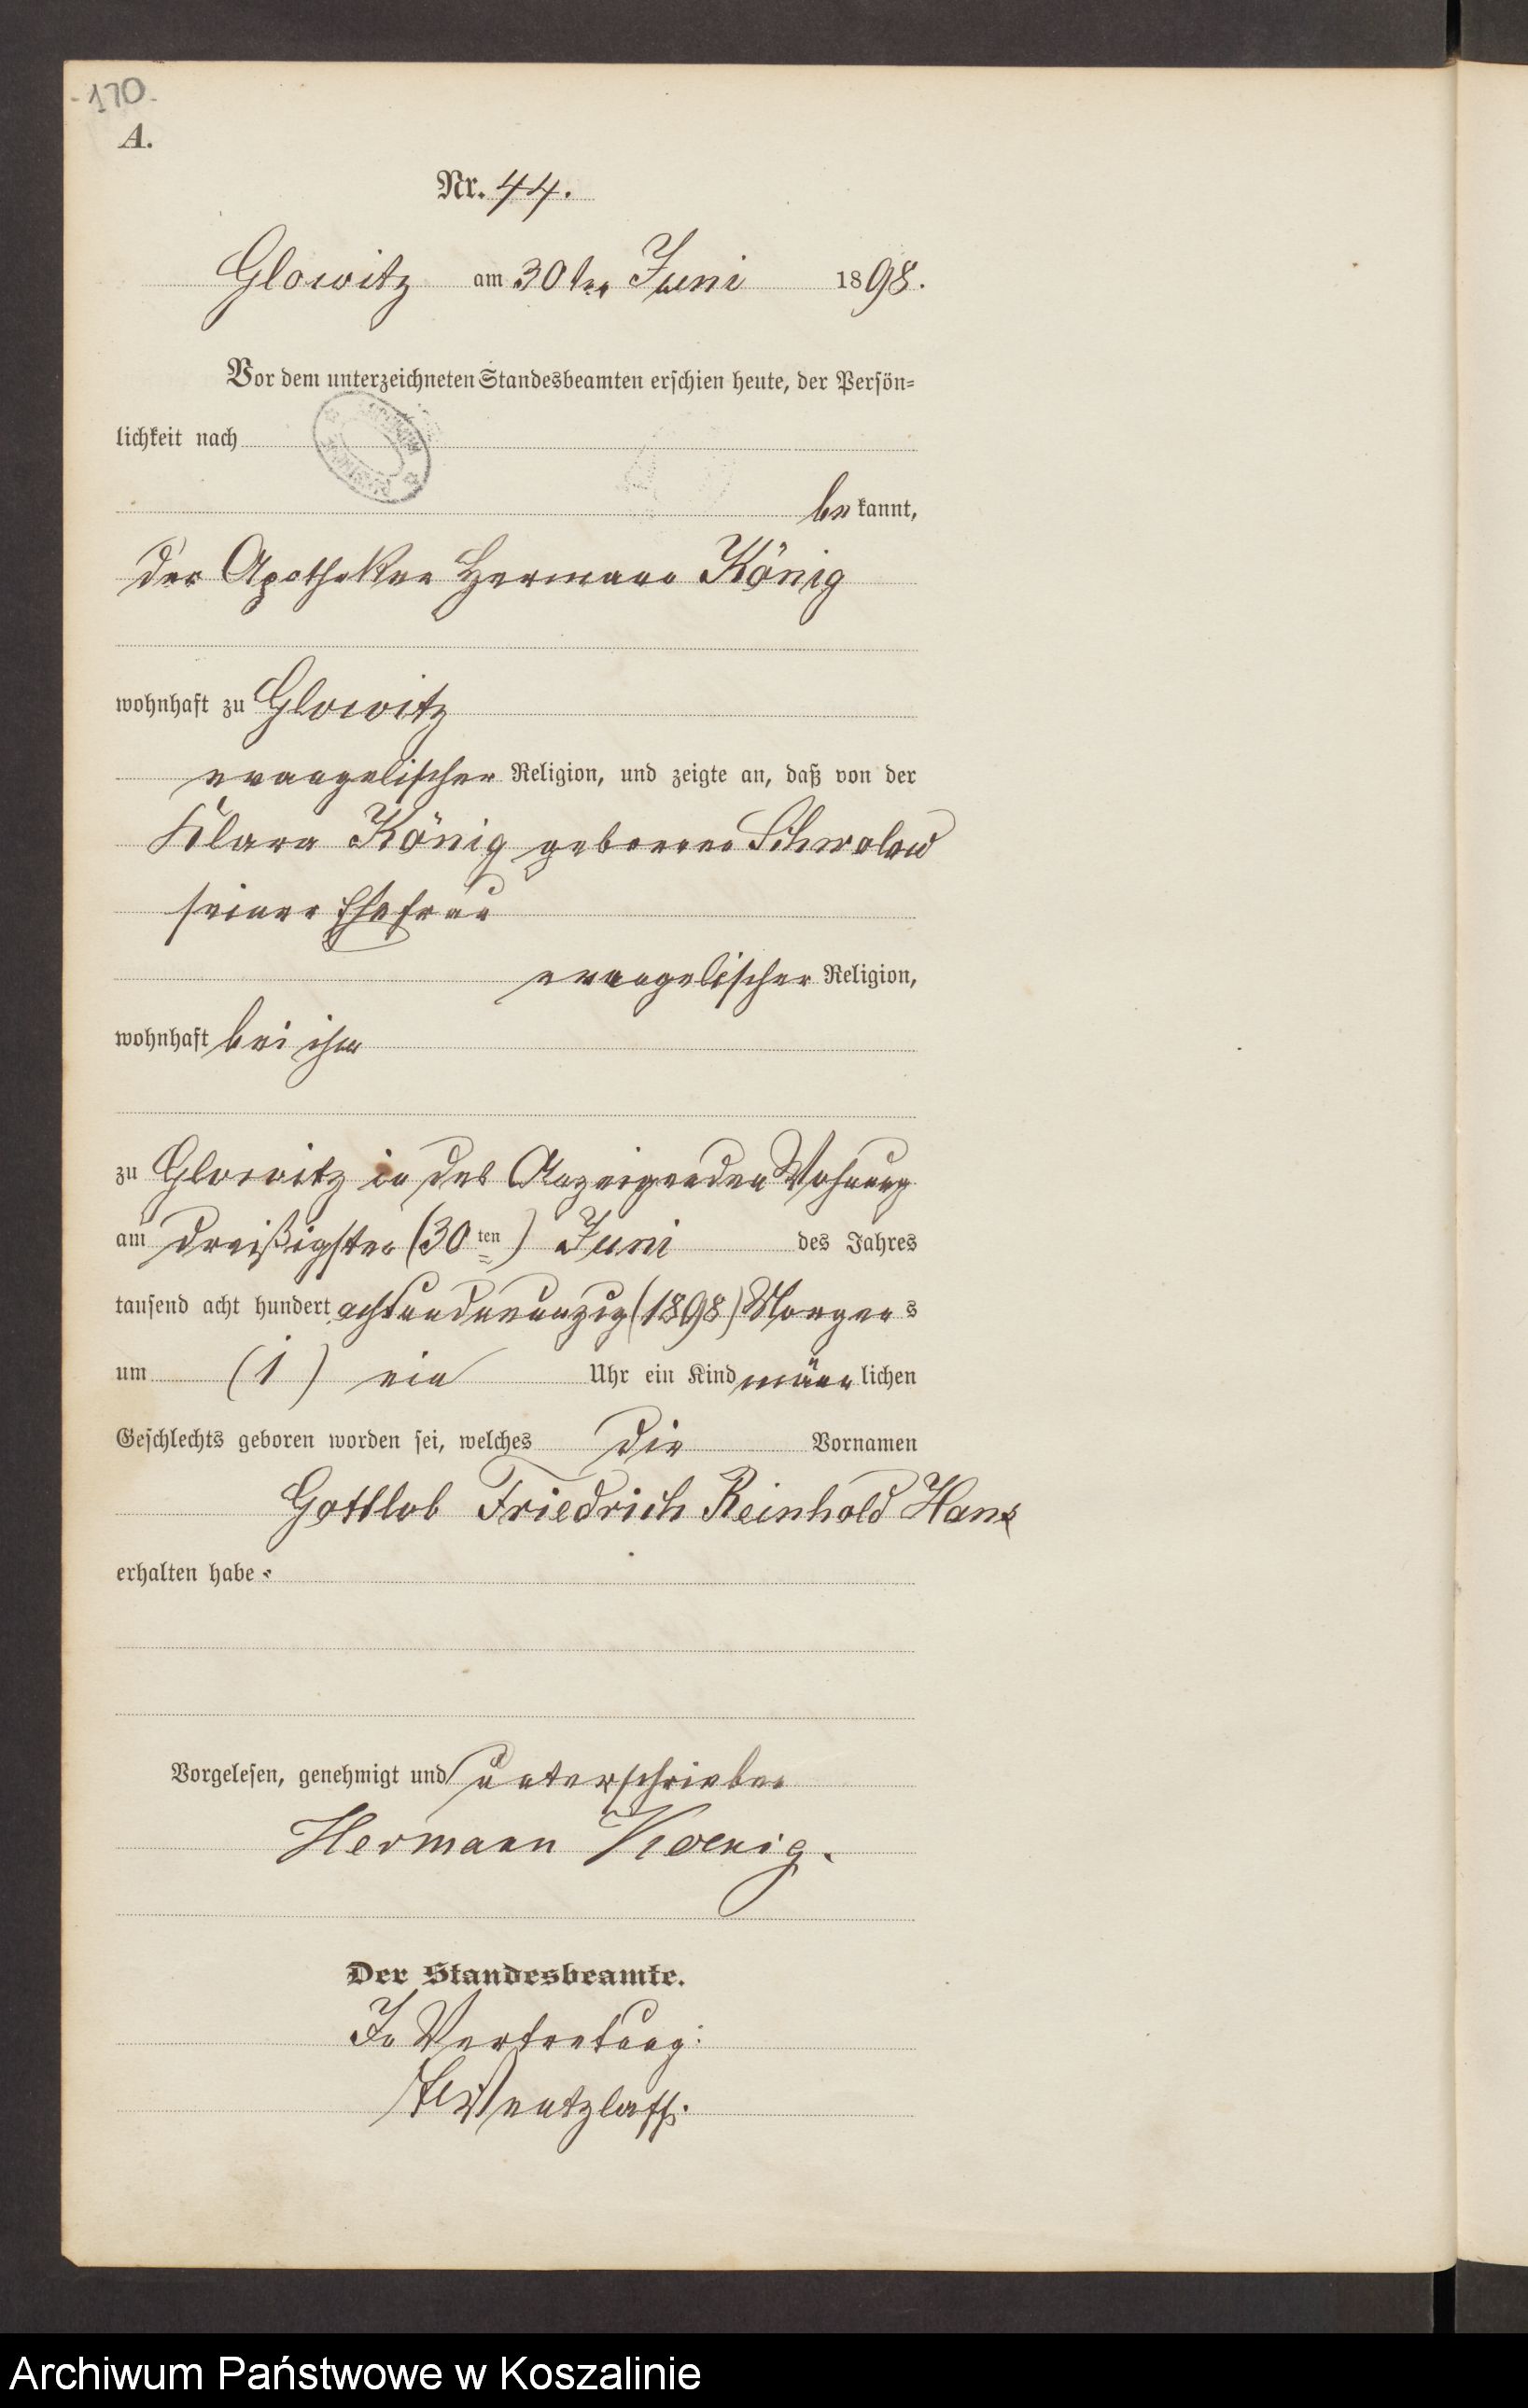 -170-
A.
Nr. 44.
Glowitz am 30ten Juni 1898.
Vor dem unterzeichneten Standesbeamten erschien heute, der Persön=
lichkeit nach
bekannt,
der Apotheker Hermann König
wohnhaft zu Glowitz
evangelischer Religion, und zeigte an, daß von der
Klara König geborene
seiner Ehefrau
evangelischer Religion,
wohnhaft bei ihm
zu Glowitz in des Anzeigenden Wohnung
am dreißigsten (30ten) Juni des Jahres
tausend acht hundert achtundneunzig (1898) Morgens
um (1) ein Uhr ein Kind männlichen
Geschlechts geboren worden sei, welches die Vornamen
Gottlob Friedrich Reinhold Hans
erhalten habe.
Vorgelesen, genehmigt und unterschrieben
Hermann Koenig.
Der Standesbeamte.
In Vertretung:
Wentzlaff.
Archiwum Państwowe w Koszalinie